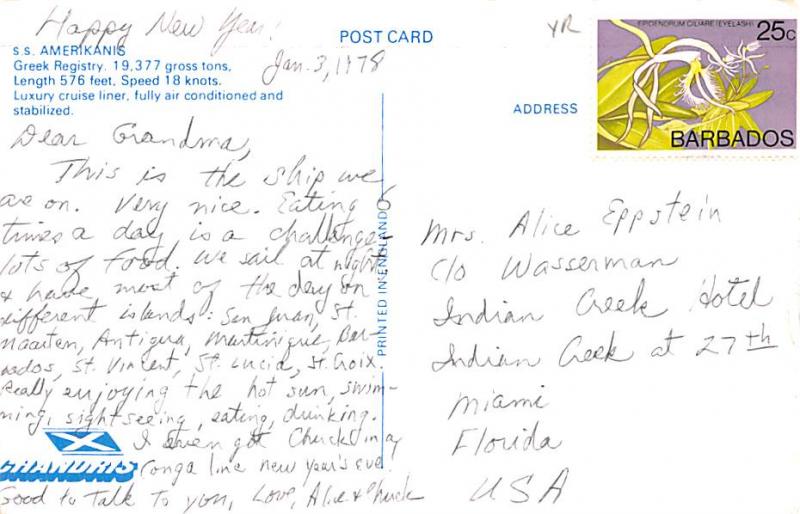 Happy New Year!
s.s. AMERIKANIS
Greek Registry. 19,377 gross tons,
Length 576 feet, Speed 18 knots.
Luxury cruise liner, fully air conditioned and
stabilized.
Jan. 3, 1978
Dear Grandma,
This is the ship we
are on. Very nice. Eating 6
times a day is a challenge-
lots of food. We sail at night
& have most of the day on
different islands: San Juan, St.
Maarten, Antigua, Martinique, Bar-
bados, St. Vincent, St. Lucia, St. Croix.
Really enjoying the hot sun, swim-
ming, sightseeing, eating, drinking.
I even got Chuck in a
Conga line New Year's Eve.
Good to talk to you, Love, Alice & Chuck
CHANDRIS
POST CARD
PRINTED IN ENGLAND
YR
ADDRESS
EPIDENDRUM CILIARE (EYELASH)
25c
BARBADOS
Mrs. Alice Eppstein
c/o Wasserman
Indian Creek Hotel
Indian Creek at 27th
Miami
Florida
USA